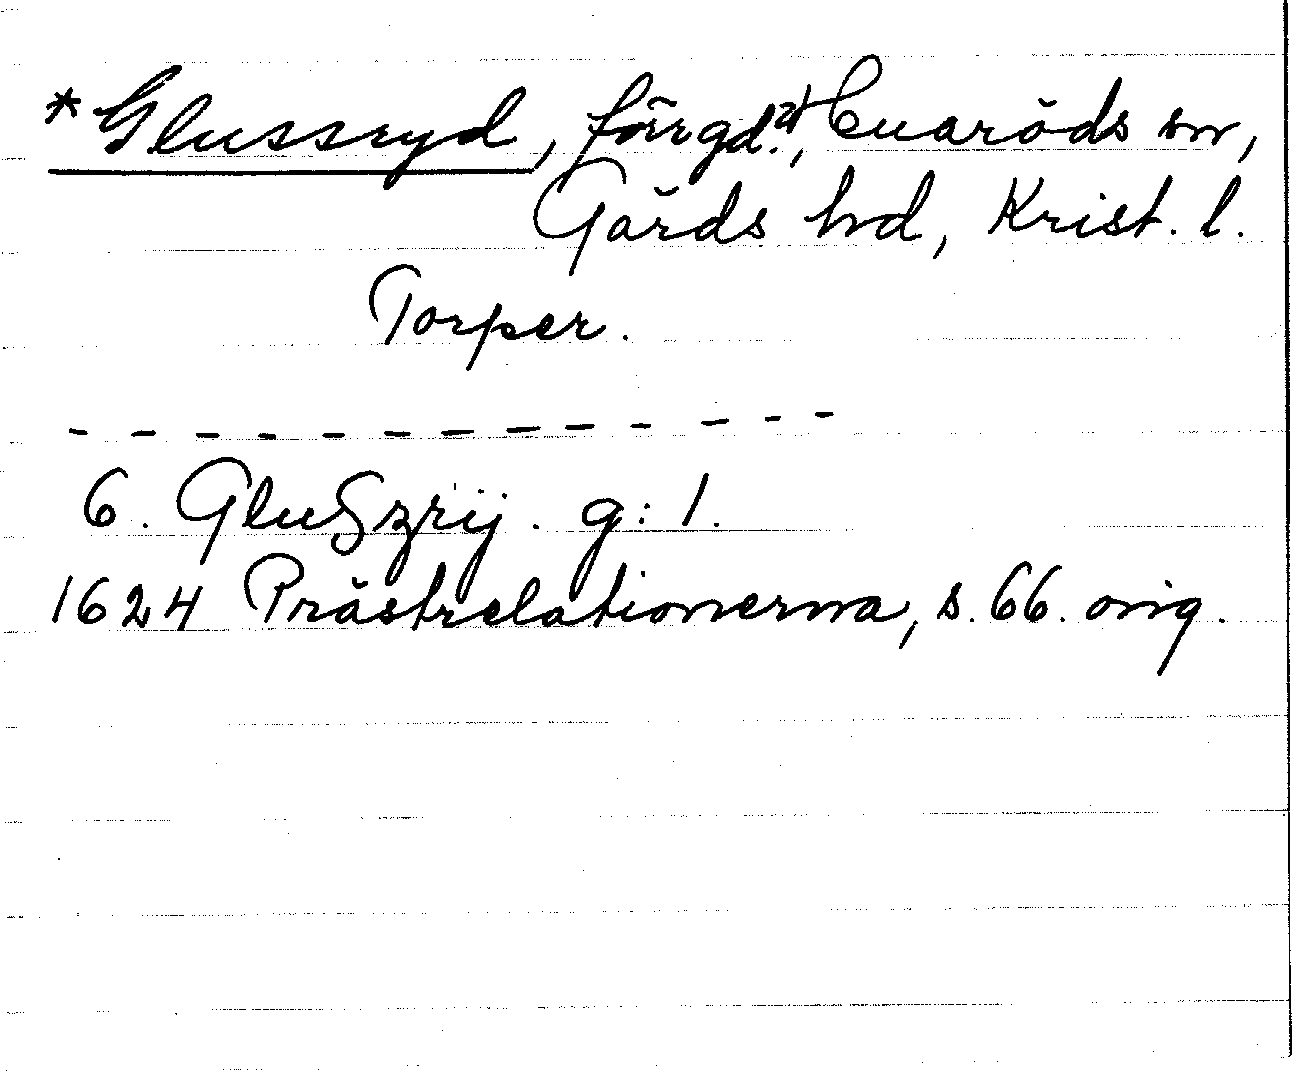 *Glussryd, förr gd?), Everöds sn,
Gärds hd, Krist. l.
Torper.
- - - - - - - - - - - - -
6. Glußzrÿ. g: 1.
1624 Prästrelationerna, s. 66. orig.